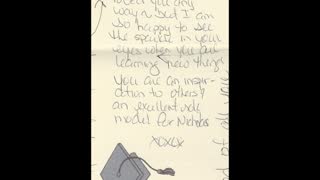 you any
way & but I am
so happy to see
the sparkle in your
eyes when you are
learning new things
You are an inspir-
ation to others &
an excellent role
model for Nicholas
xoxox